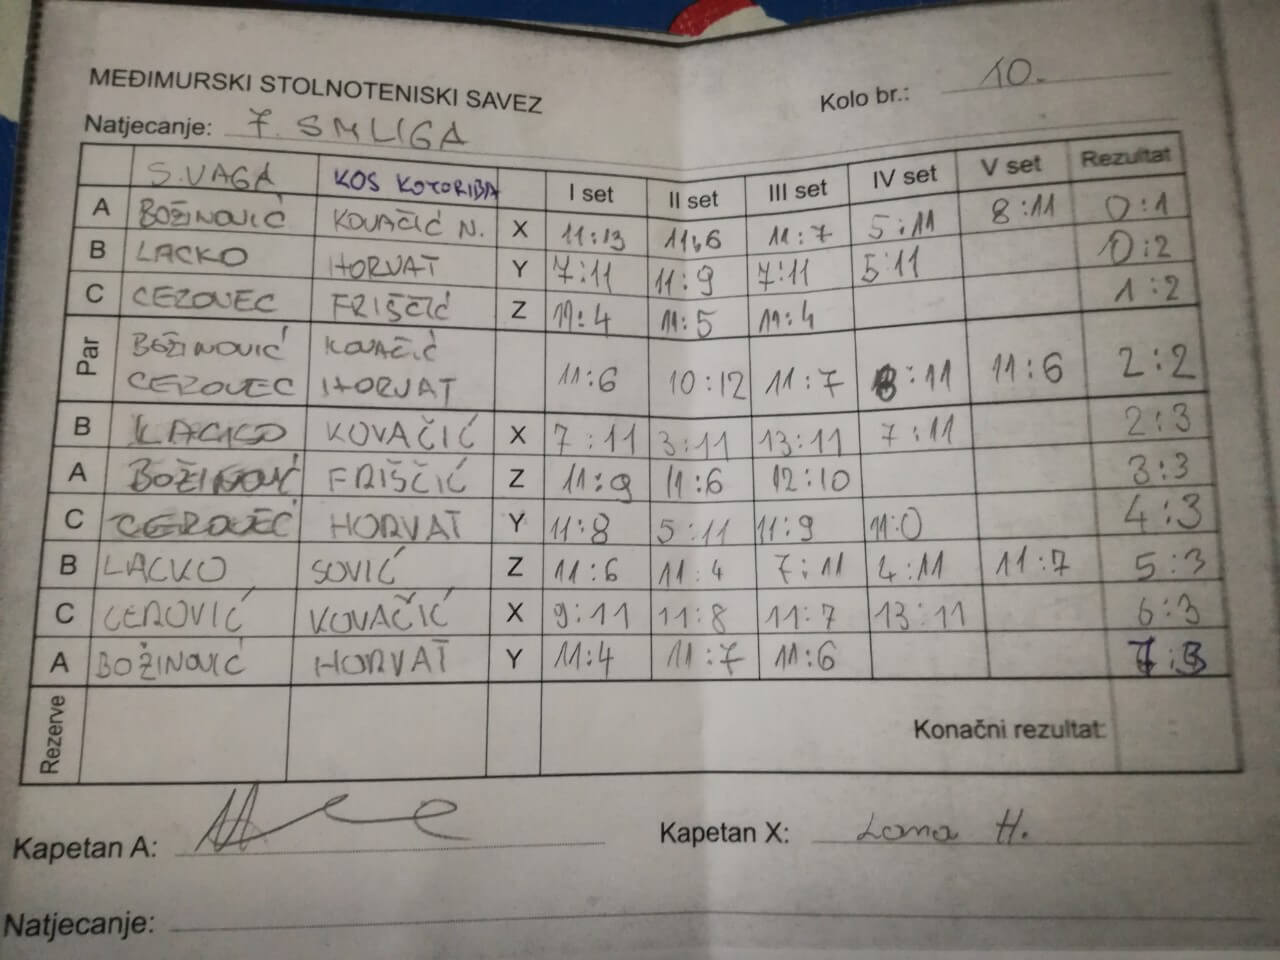 MEĐIMURSKI STOLNOTENISKI SAVEZ
Kolo br.: 10.
Natjecanje: 7. SMLIGA
S.VAGA KOS KOTORIBA I set II set III set IV set V set Rezultat
A BOŽINOVIĆ KOVAČIĆ N. X 11:13 11:6 11:7 5:11 8:11 0:1
B LACKO HORVAT Y 7:11 11:9 7:11 5:11 0:2
C CEROVEC FRIŠČIĆ Z 11:4 11:5 11:4 1:2
Par BOŽINOVIĆ KOVAČIĆ
CEROVEC HORVAT 11:6 10:12 11:7 8:11 11:6 2:2
B LACKO KOVAČIĆ X 7:11 3:11 13:11 7:11 2:3
A BOŽINOVIĆ FRIŠČIĆ Z 11:9 11:6 12:10 3:3
C CEROVEC HORVAT Y 11:8 5:11 11:9 11:0 4:3
B LACKO SOVIĆ Z 11:6 11:4 7:11 4:11 11:7 5:3
C CEROVIĆ KOVAČIĆ X 9:11 11:8 11:7 13:11 6:3
A BOŽINOVIĆ HORVAT Y 11:4 11:7 11:6 7:3
Rezerve Konačni rezultat:
Kapetan A: Kapetan X: Lana H.
Natjecanje: